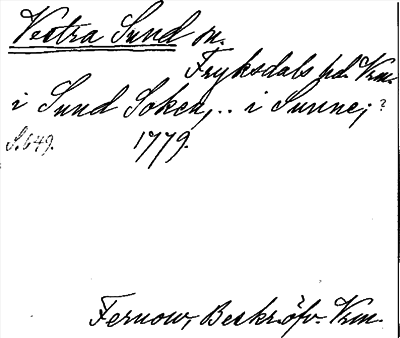 Vestra Sund m.
Fryksdals hd. Vrm.
i Sund Soken, .. i Sunne; ?
S. 649. 1779.
Fernow, Beskröfv. Vrm.